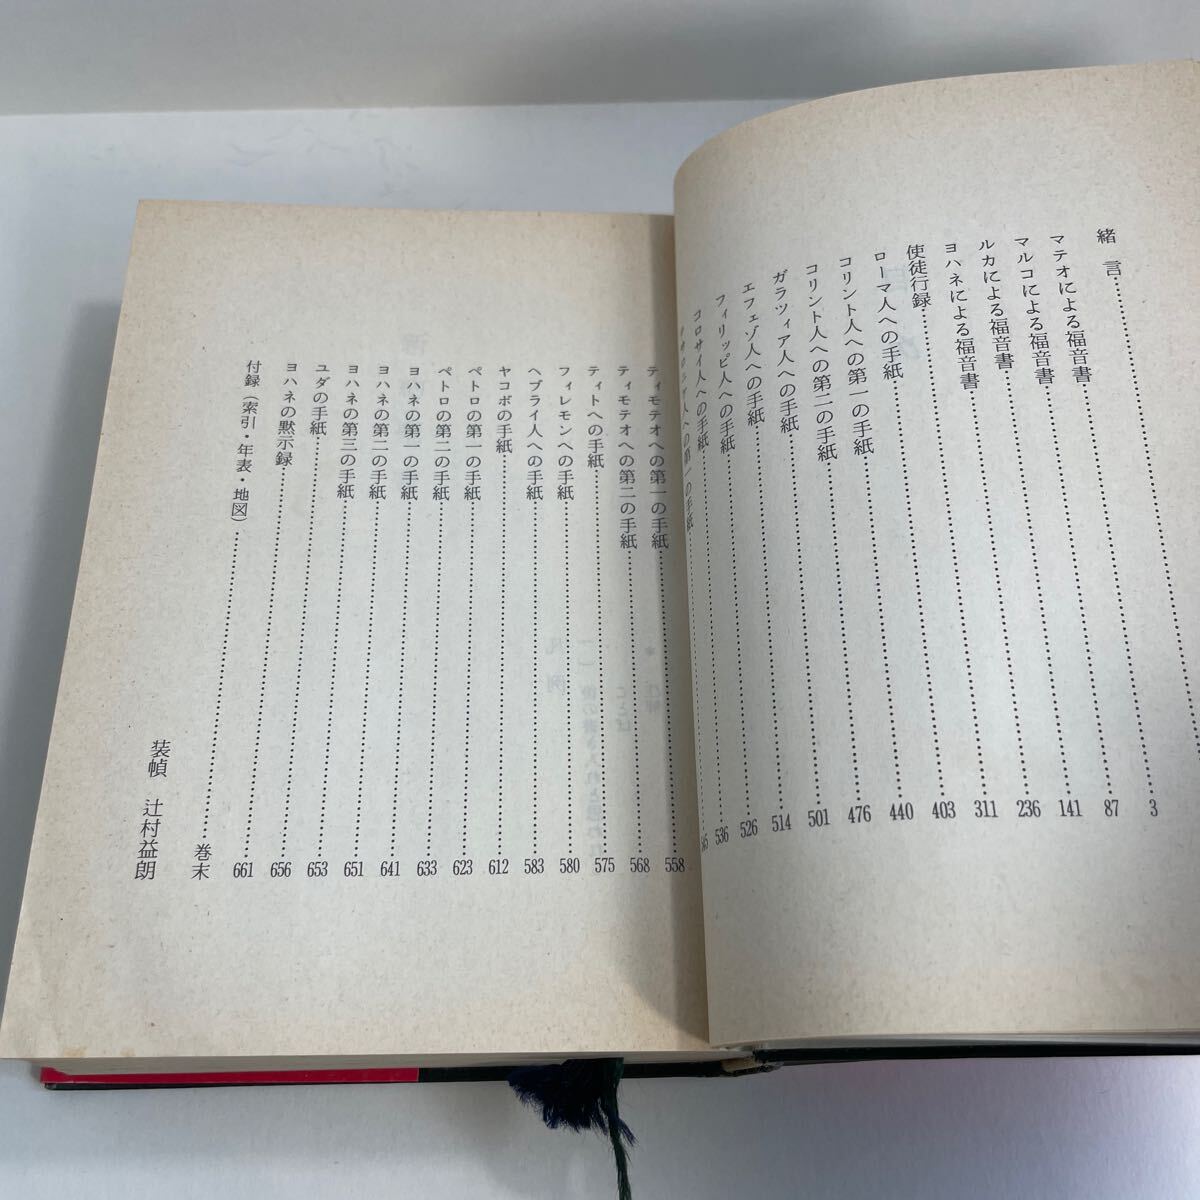 緒言
マテオによる福音書 3
マルコによる福音書 87
ルカによる福音書 141
ヨハネによる福音書 236
使徒行録 311
ローマ人への手紙 403
コリント人への第一の手紙 440
コリント人への第二の手紙 476
ガラツィア人への手紙 501
エフェゾ人への手紙 514
フィリッピ人への手紙 526
コロサイ人への手紙 536
人への第一の手紙
ティモテオへの第一の手紙 558
ティモテオへの第二の手紙 568
ティトへの手紙 575
フィレモンへの手紙 580
ヘブライ人への手紙 583
ヤコボの手紙 612
ペトロの第一の手紙 623
ペトロの第二の手紙 633
ヨハネの第一の手紙 641
ヨハネの第二の手紙 651
ヨハネの第三の手紙 653
ユダの手紙 656
ヨハネの黙示録 661
付録(索引・年表・地図) 巻末
装幀 辻村益朗